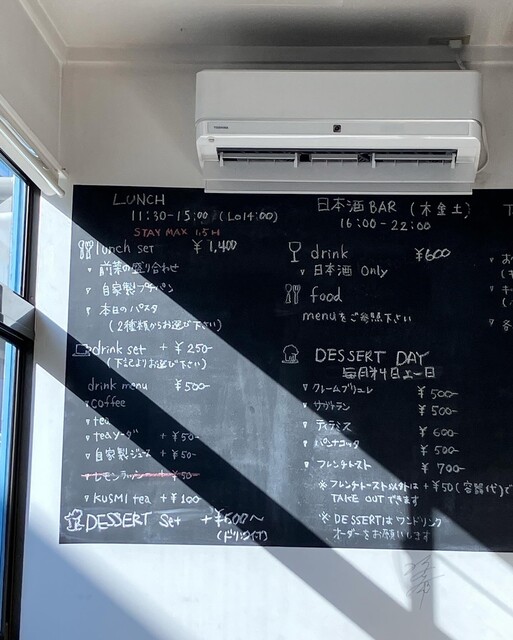 TOSHIBA
LUNCH
11:30-15:00 (Lo14:00)
STAY MAX 1.5H
lunch set ¥1,400
前菜の盛り合わせ
自家製プチパン
本日のパスタ
(2種類からお選び下さい)
drink set + ¥250-
(下記よりお選び下さい)
drink menu ¥500-
coffee
tea
teaソーダ + ¥50-
自家製ジュース + ¥50-
+ ¥50-
KUSMI tea + ¥100
DESSERT Set +¥600〜
日本酒 BAR (木金土)
16:00-22:00
drink ¥600
日本酒 Only
food
menuをご参照下さい
DESSERT DAY
毎月第4日 日
クレームブリュレ ¥500-
サヴァラン ¥500-
ティラミス ¥600-
パンナコッタ ¥500-
フレンチトースト ¥700-
※ フレンチトースト以外は +¥50(容器代)で
TAKE OUT できます
※ DESSERTは ワンドリンク
オーダーをお願いします
T